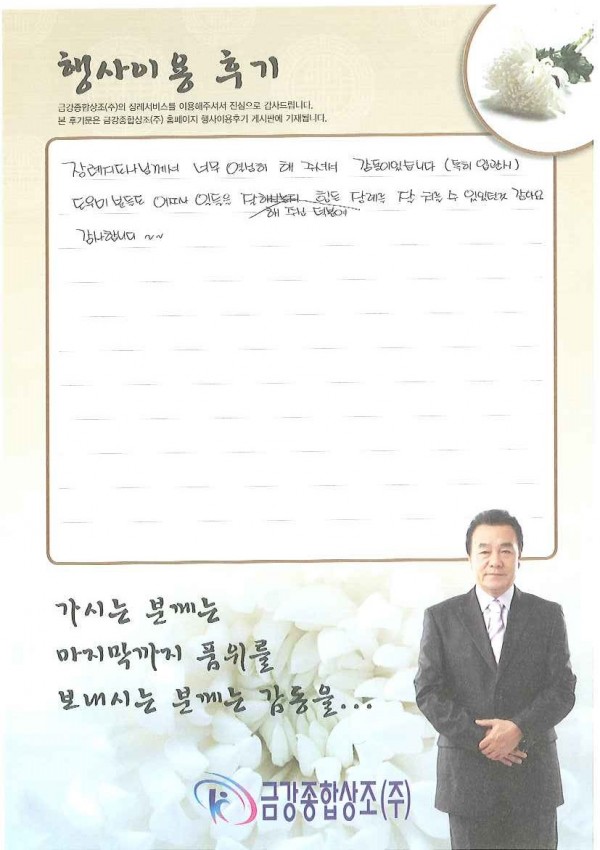 행사이용 후기
금강종합상조(수)의 장례서비스를 이용해주셔서 진심으로 감사드립니다.
본 후기문은 금강종합상조(주) 홈페이지 행사이용후기 게시판에 기재됩니다.
장례지도사님께서 너무 열심히 해 주셔서 감동이었습니다 (특히 입관시)
도우미 분들도 일들을 잘 해 주신 덕분에 힘든 장례를 잘 치를 수 있었던거 같아요
감사합니다 ~~
가시는 분께는
마지막까지 품위를
보내시는 분께는 감동을...
금강종합상조(주)